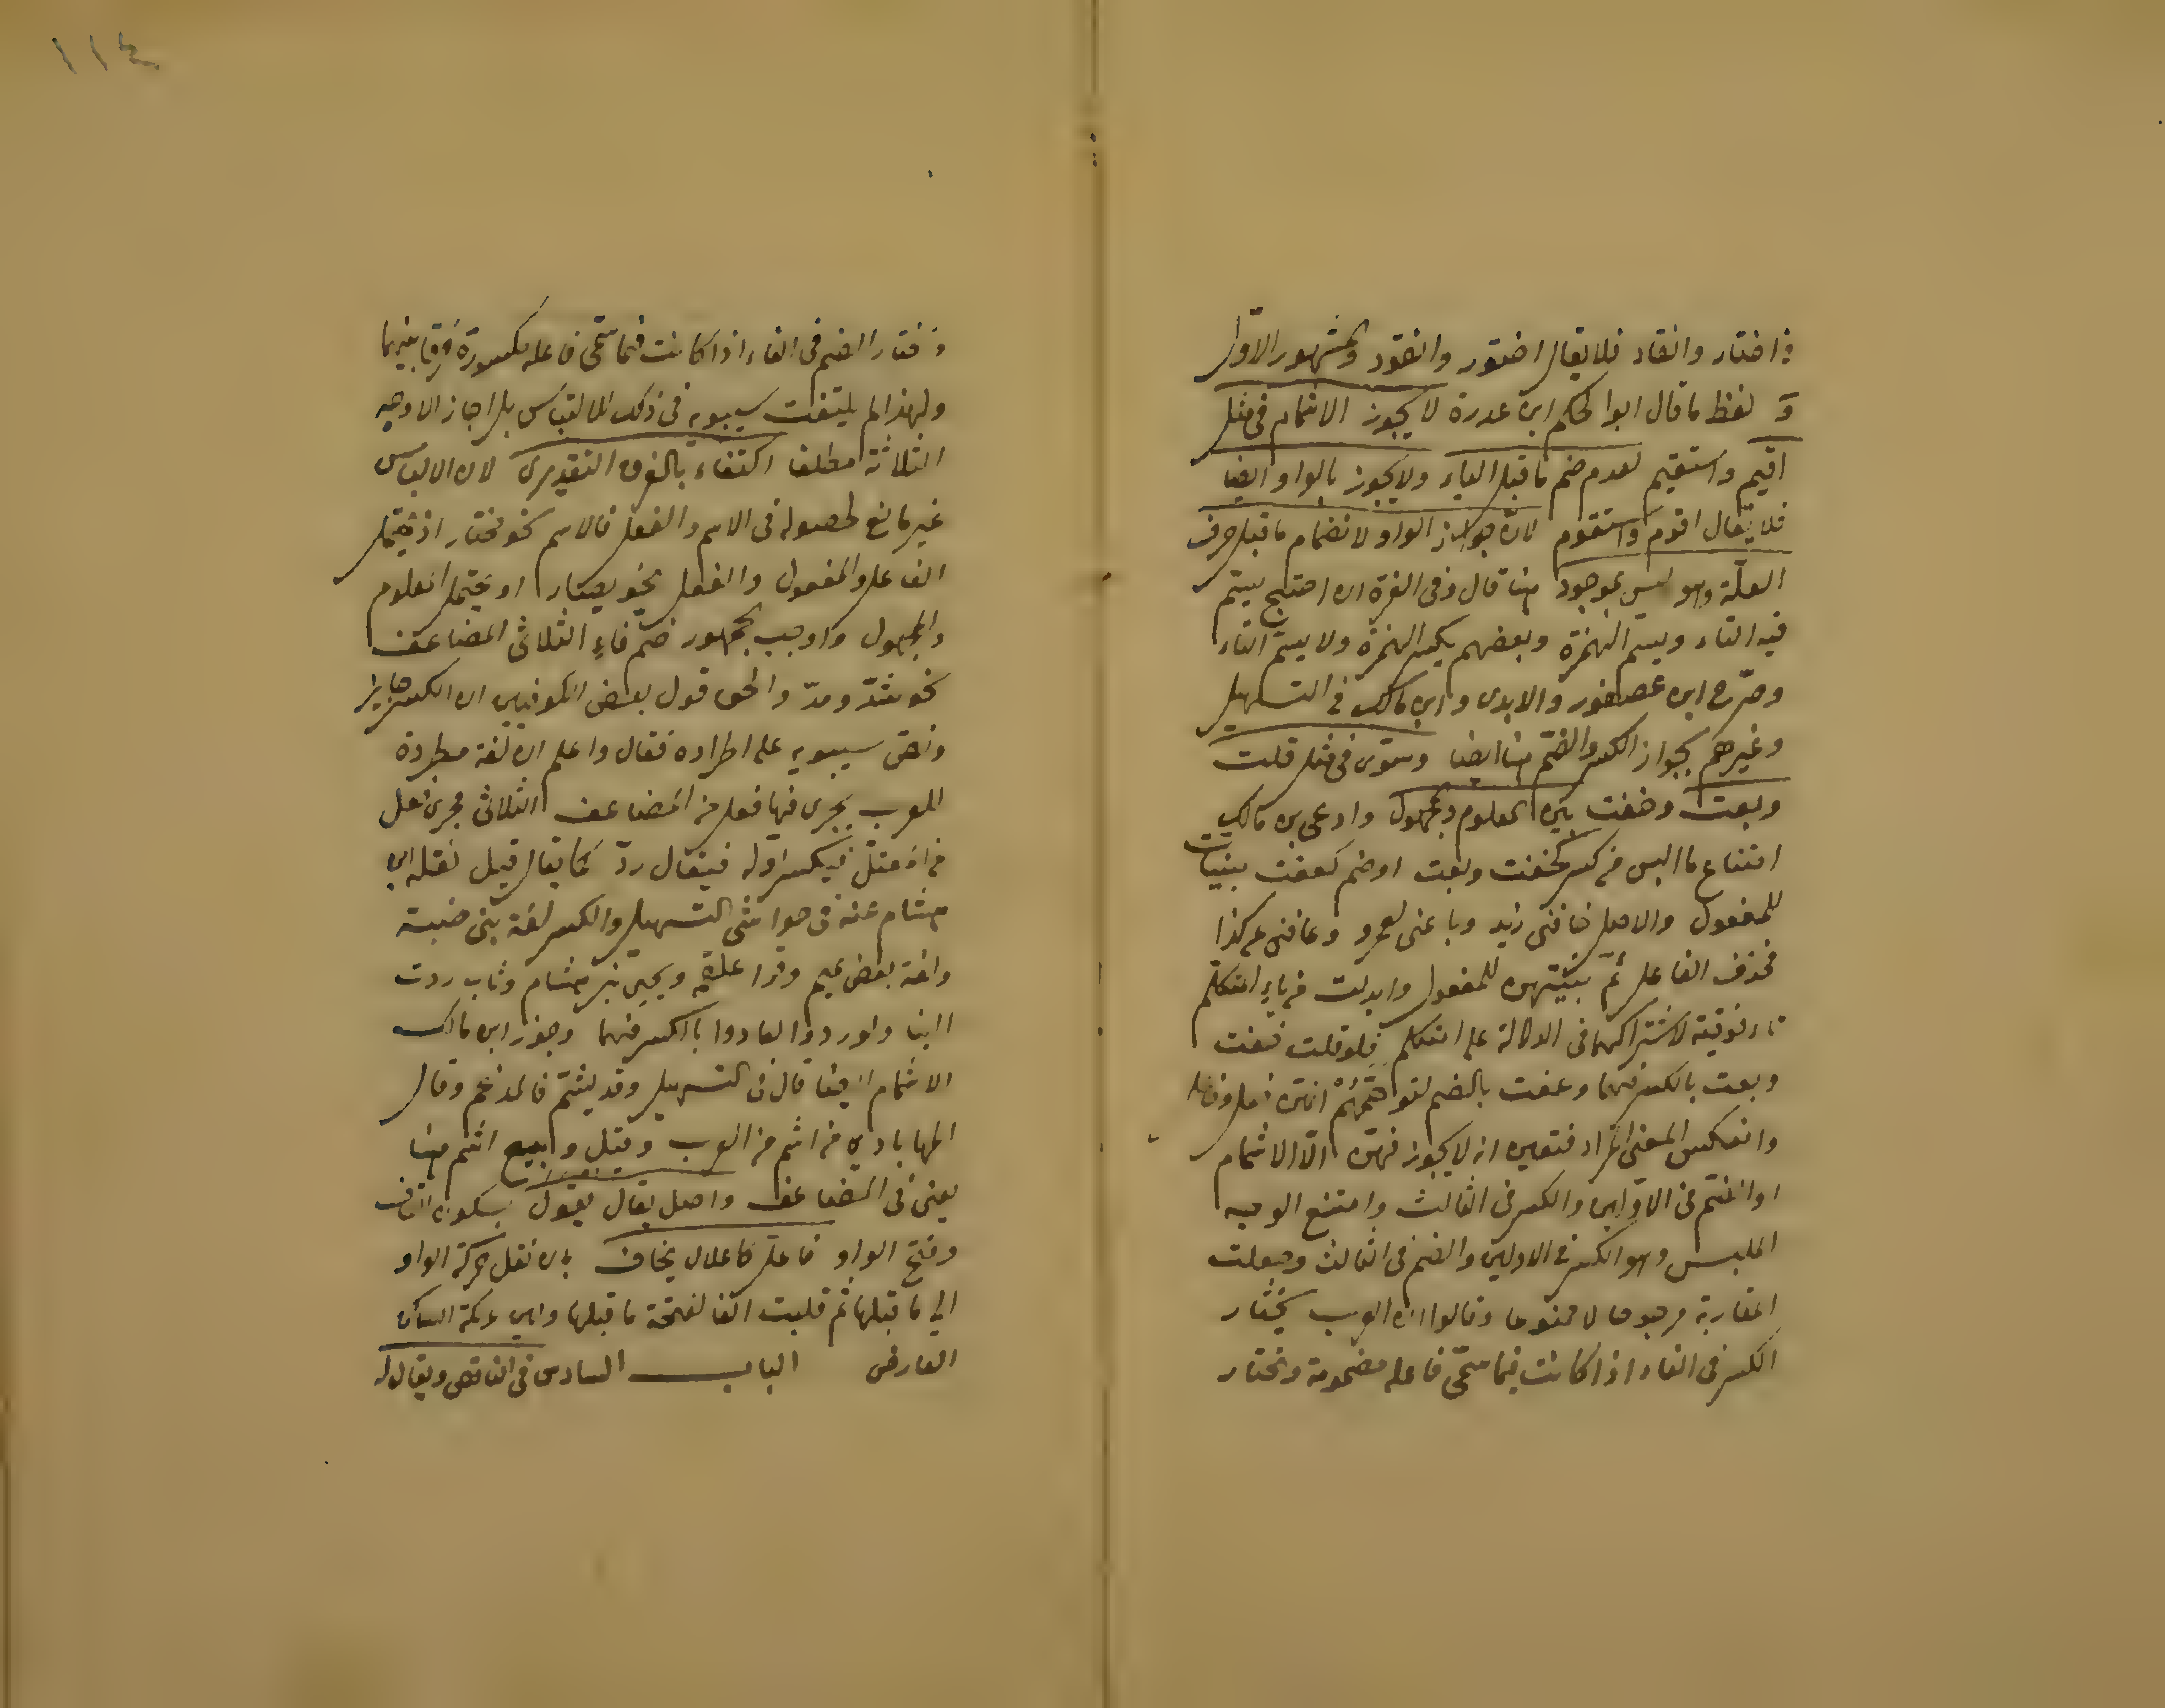 في اختار وانقاد فلا يقال اختور وانقود والمشهور الاول
و لفظ ما قال ابو الحكم ابن عدرة لا يجوز الاشمام في مثل
اقيم واستقيم لعدم ضم ما قبل الياء ولا يجوز بالواو ايضا
فلا يقال اقوم واستقوم لان جواز الواو لانضمام ما قبل حرف
العلة وهو ليس بموجود هنا قال وفى الغرة ان احتيج يشم
فيه التاء ويشم الهمزة وبعضهم يكسر الهمزة ولا يشم التاء
وصرح ابن عصفور والابدى وابن مالك في التسهيل
وغيرهم بجواز الكسر والضم هنا ايضا وسوى في مثل قلت
وبعت وخفت بين المعلوم والمجهول وادعى بن مالك
امتناع ما البس من كسر كخفت وبعت او ضم كعقت بنيات
للمفعول والاصل خافنى زيد وباعنى لعمرو وعاقنى عن كذا
فحذف الفاعل ثم بنيتهن للمفعول وابدلت من ياء المتكلم
تاء فوقية لاشتراكهما فى الدلالة على المتكلم فلو قلت خفت
وبعت بالكسر فيهما وعقت بالضم لتوهم انهن فعل وفاعل
وانعكس المعنى المراد فتعين انه لا يجوز فيهن الا الاشمام
او الضم فى الاولين والكسر فى الثالث وامتنع الوجه
الملبس وهو الكسر في الاولين والضم فى الثالث وجعلت
المغاربة مرجوحا لا ممنوعا وقالوا ان العرب يختار
الكسر فى الفاء اذا كانت فيما سمى فاعله مضمومة وتختار
وتختار الضم فى الفاء اذا كانت فيما سمى فاعله مكسورة فرقا بينهما
ولهذا لم يلتفت سيبويه فى ذلك الالتباس بل اجاز الاوجه
الثلاثة مطلقا اكتفاء بالفرق التقديرى لان الالباس
غير مانع لحصوله فى الاسم والفعل فالاسم نحو مختار اذ يحتمل
الفاعل والمفعول والفعل نحو يضار اذ يحتمل المعلوم
والمجهول واوجب الجمهور ضم فاء الثلاثى المضاعف
نحو شد ومد والحق قول بعض الكوفيين ان الكسر جائز
ونص سيبويه على اطراده فقال واعلم ان لغة مطردة
للعرب يجرى فيها فعل من المضاعف الثلاثى مجرى فعل
من المعتل فيكسر اوله فيقال رد كما يقال قيل نقله ابن
هشام عنه فى حواشى التسهيل والكسر لغة بنى ضبة
ولغة بعض تميم وقرا علقمة ويحيى بن هشام وثاب ردت
الينا ولو ردوا لعادوا بالكسر فيهما وجوز ابن مالك
الاشمام ايضا قال فى التسهيل وقد يشم فا المدغم وقال
المهابادي من اشم من العرب وقيل وبيع اشم هنا
يعنى فى المضاعف واصل يقال يقول بسكون القاف
وفتح الواو فاعل كاعلال يخاف بان نقل حركة الواو
الى ما قبلها ثم قلبت الفا لفتحة ما قبلها ولين عريكة الساكن
العارض الباب السادس فى الناقص ويقال له
١١٤